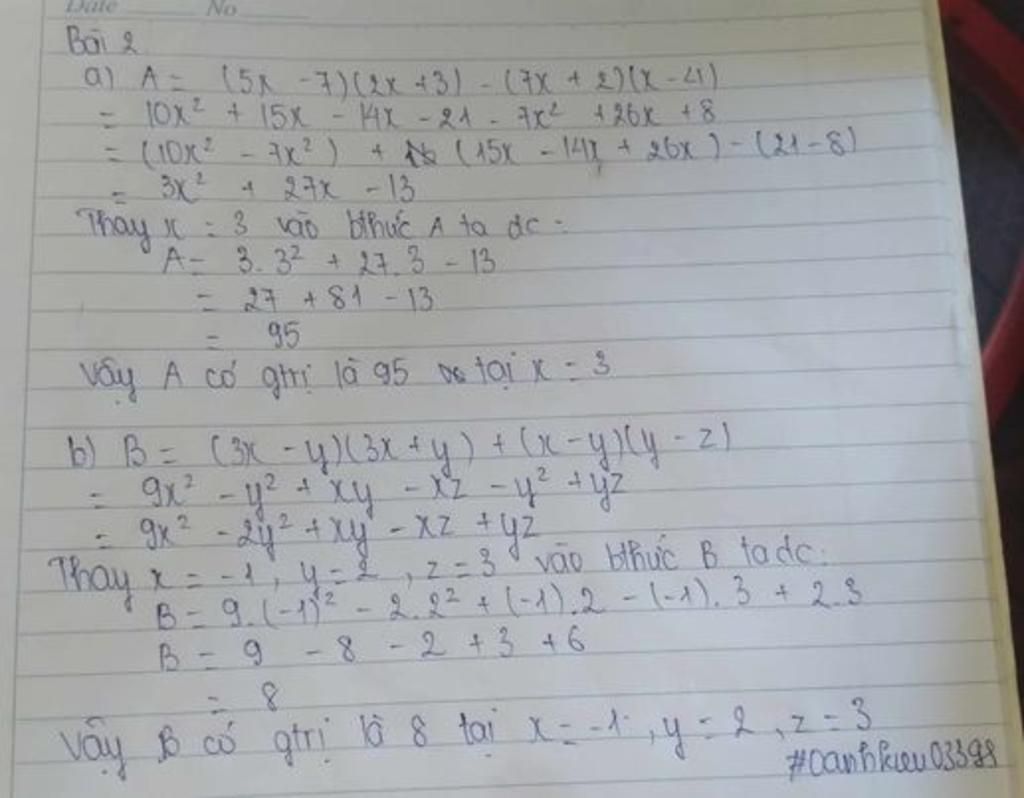 Date No
Bài 2
a) A = (5x - 7)(2x + 3) - (7x + 2)(x - 4)
= 10x² + 15x - 14x - 21 - 7x² + 26x + 8
= (10x² - 7x²) + (15x - 14x + 26x) - (21 - 8)
= 3x² + 27x - 13
Thay x = 3 vào bthức A ta dc:
A = 3.3² + 27.3 - 13
= 27 + 81 - 13
= 95
Vậy A có gtrị là 95 tại x = 3
b) B = (3x - y)(3x + y) + (x - y)(y - z)
= 9x² - y² + xy - xz - y² + yz
= 9x² - 2y² + xy - xz + yz
Thay x = -1, y = 2, z = 3 vào bthức B ta dc:
B = 9.(-1)² - 2.2² + (-1).2 - (-1).3 + 2.3
B = 9 - 8 - 2 + 3 + 6
= 8
Vậy B có gtrị là 8 tại x = -1, y = 2, z = 3
#oanhkieu03398